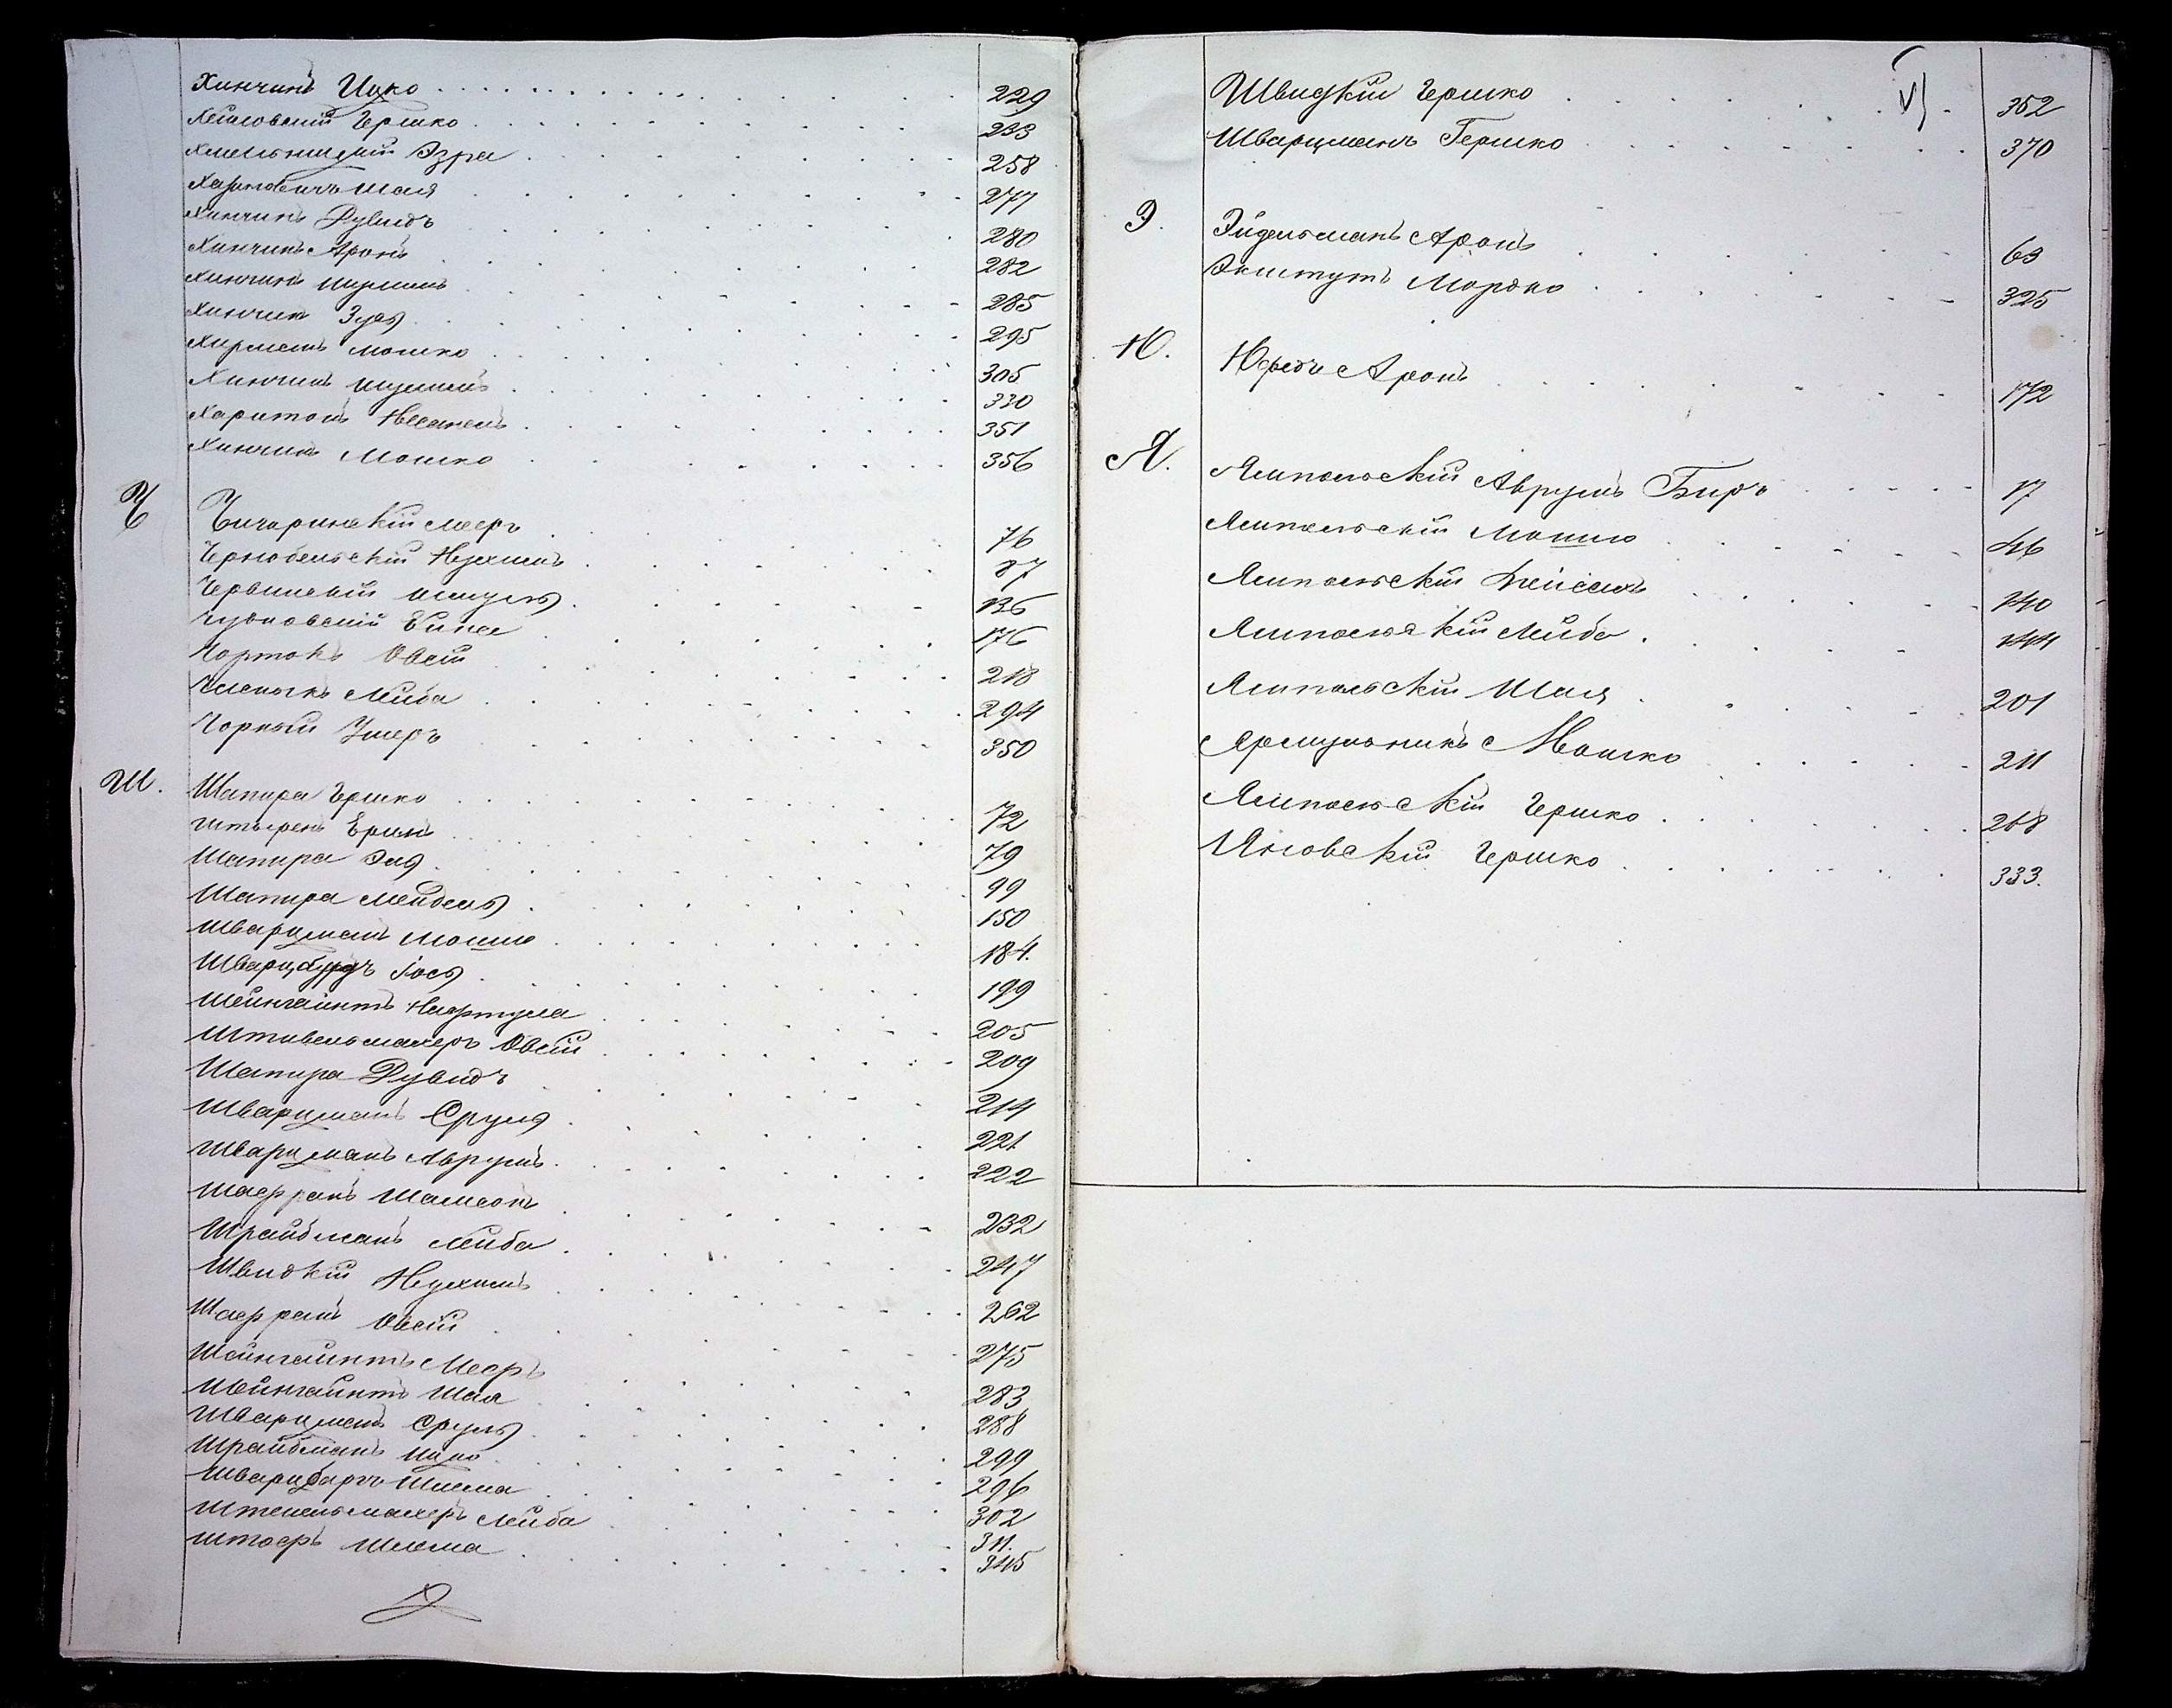 Хинчинъ Ицко 229
Хейловскій Гершко 233
Хмельницкій Эзра 258
Хаймовичъ Шая 277
Хинчинъ Дувидъ 280
Хинчинъ Аронъ 282
Хинчинъ Шулимъ 285
Хинчин Зусь 295
Хирманъ Мошко 305
Хинчинъ Шулимъ 330
Харитонъ Несанель 351
Хинчинъ Мошко 356
Ч Чигиринскій Мееръ 76
Чернобельскій Нухимъ 87
Червинскій Шмуль 136
Чудновскій Елико 176
Чортокъ Овсій 218
Членыкъ Лейба 294
Чорный Умеръ 350
Ш. Шапира Гершко 72
Штыренъ Ерихъ 79
Шапира Эля 99
Шапира Лейдель 150
Шварцманъ Мошко 184.
Шварцбурдъ Іось 199
Шейнгайнтъ Нафтула 205
Штивельмахеръ Овсій 209
Шапира Дувидъ 214
Шварцманъ Сруль 221
Шварцманъ Аврумъ 222
Шафранъ Шамсонъ 232
Шрайбманъ Лейба 247
Швидкій Нухимъ 262
Шафранъ Овсій 275
Шейнгайнтъ Мееръ 283
Шейнгайнтъ Шая 288
Шварцманъ Сруль 299
Шрайбманъ Ицко 296
Шварцбаргъ Шлема 302
Штенельмахеръ Лейба 311.
Штоеръ Шлема 345
VI
Швидкій Гершко 352
Шварцманъ Гершко 370
Э. Эйдельманъ Аронъ 63
Экштутъ Мордко 325
Ю. Юфедъ Аронъ 172
Я. Ямпольскій Аврумъ Биръ 17
Ямпольскій Мошко 46
Ямпольскій Лейсахъ 140
Ямпольскій Лейба 144
Ямпольскій Шая 201
Ярмульникъ Мошко 211
Ямпольскій Гершко 268
Яновскій Гершко 333.